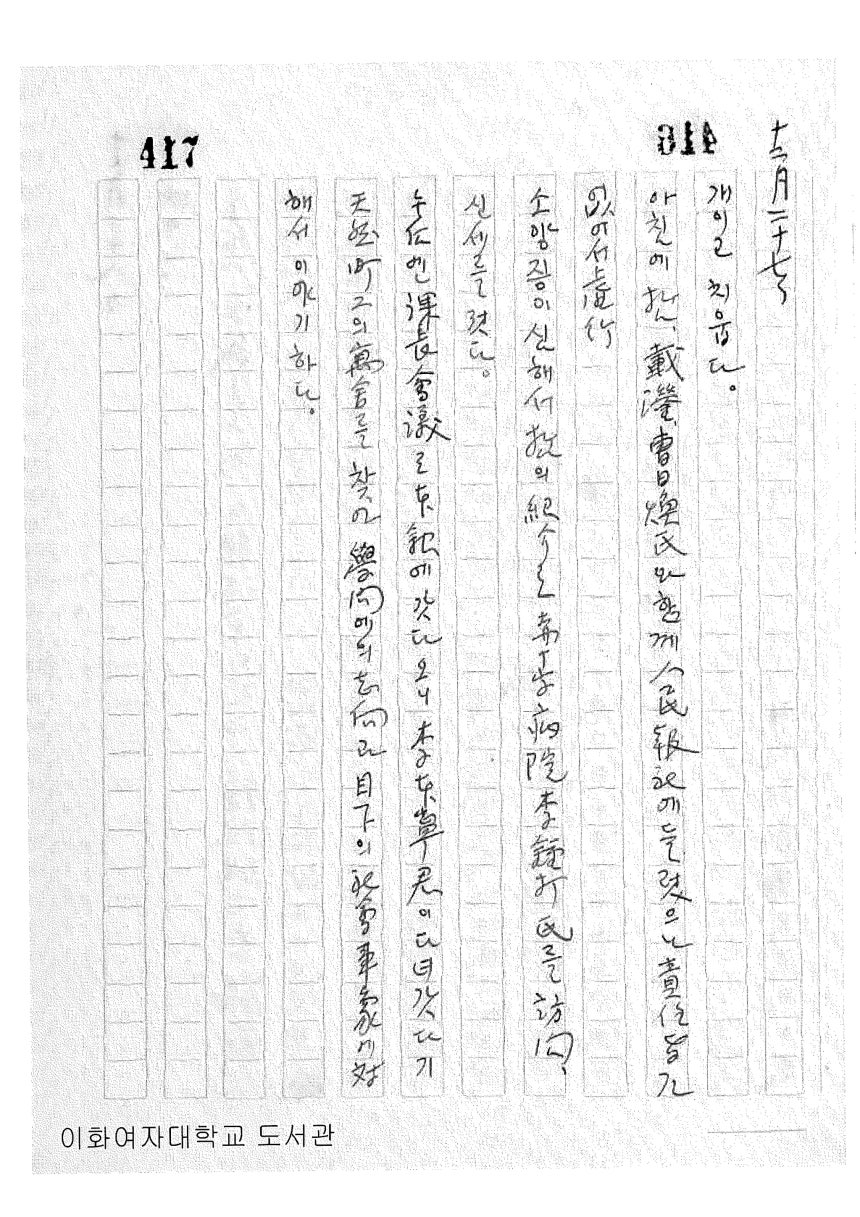 十二月二十七日
개이고 치웁다。
아침에 拙、戴瀅、曹日煥氏와 함께 人民報社에 들렸으나 責任者가
없어서 虛行
소양증이 심해서 拙의 紹介로 赤十字病院 李鍾打氏를 訪問、
신세를 젔다。
누仁엔 課長會議로 本館에 갔다 오니 李本寧君이 다녀갔다기
天然町 그의 寓舍를 찾어 學問에의 志向과 目下의 社會事象에 対
해서 이야기하다。
417
이화여자대학교 도서관